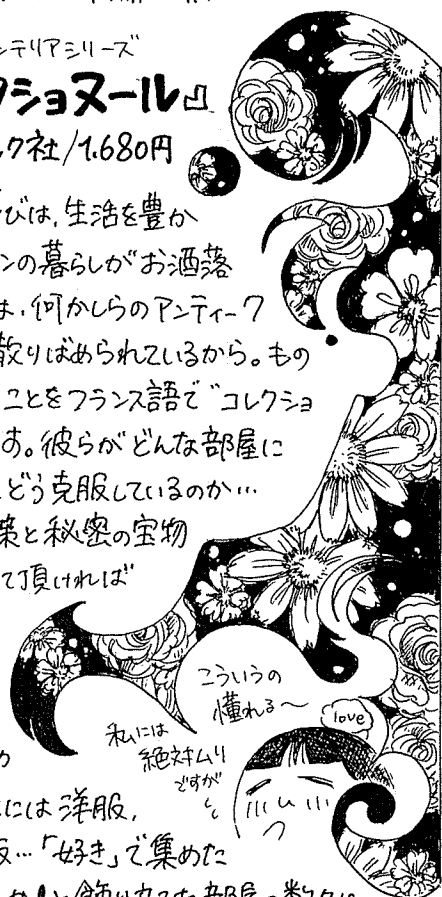 ンテリアシリーズ
クショヌール』
ック社/1.680円
びは、生活を豊か
ンの暮らしがお洒落
は、何かしらのアンティーク
散りばめられているから。もの
ことをフランス語で“コレクショ
す。彼らがどんな部屋に
どう克服しているのか…
策と秘密の宝物
て頂ければ
こういうの
憧れる〜
love
私には
絶対ムリ
ですが
には洋服,
…「好き」で集めた